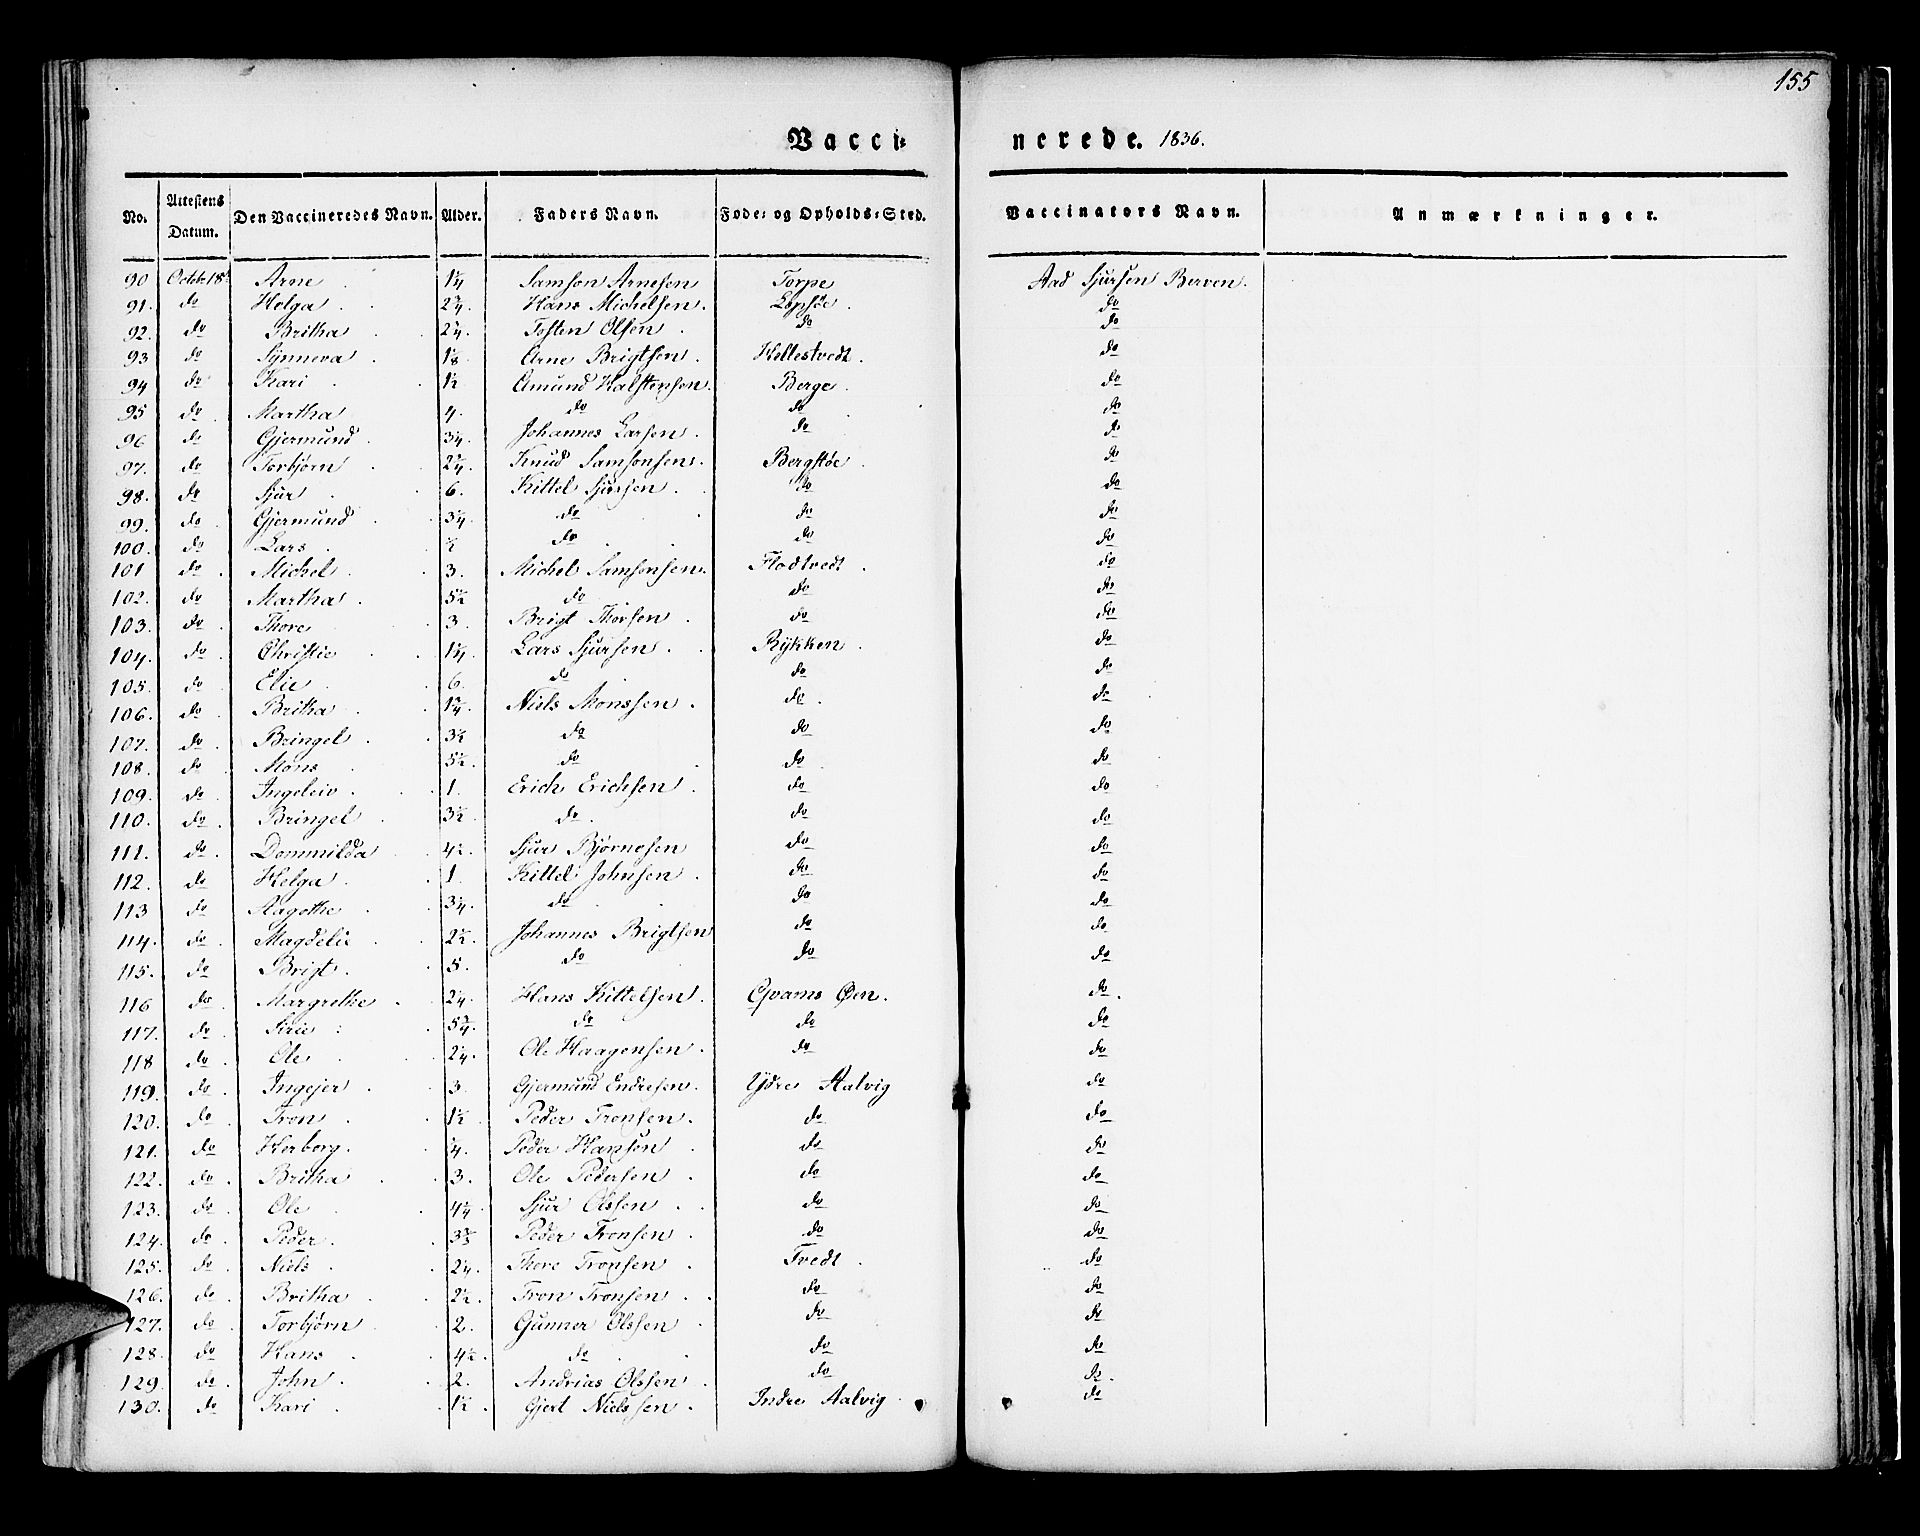 155
Vacci= nerede. 1836.
No. Attestens Datum. Den Vaccineredes Navn. Alder. Faders Navn. Føde= og Opholds=Sted. Vaccinators Navn. Anmærkninger.
90 Octobr 18de Arne 1¼ Samson Arnesen Torpe Aad Sjursen Berven
91. do Helga 2¾. Hans Michelsen Lepsøe. do
92. do Britha 2¼. Tosten Olsen do do
93 do Synneva 1⅛ Arne Brigtsen. Hellestvedt. do
94 do Kari 1½ Amund Halstensen. Berge. do
95 do Martha 4. do do do
96 do Gjermund 3¼. Johannes Larsen. do do
97. do Torbjørn 2¾. Knud Samsonsen. Bergstøe do
98. do Sjur 6. Kittel Sjursen do do
99. do Gjermund 3¼. do do do
100. do Lars ½ do do do
101 do Michel 3. Michel Samsonsen. Flodtvedt do
102. do Martha 5½ do do do
103. do Thore 3. Brigt Thorsen do do
104. do Christie 1¼ Lars Sjursen Rykken do
105. do Elie 6. do do do
106. do Britha 1¾ Niels Monssen do do
107. do Bringel 3½ do do do
108. do Mons 5½. do do do
109. do Ingeleiv 1. Erich Erichsen do do
110. do Bringel 3½ do do do
111. do Dommilda 4½. Sjur Bjørnesen do do
112. do Helga 1. Kittel Johnsen do do
113 do Aagothe 3¼. do do do
114. do Magdelie 2½. Johannes Brigtsen do do
115. do Brigt 5. do do do
116 do Margrethe 2¼. Hans Kittelsen Qvams Øen. do
117. do Sirie 5¾. do do do
118 do Ole 2¼. Ole Haagensen do do
119. do Ingejer 3. Gjermund Endresen Ydre Aalvig do
120. do Tron 1½ Peder Tronsen. do do
121. do Herborg. ¼. Peder Hanson do do
122. do Britha 3. Ole Pedersen do do
123. do Ole 4¾ Sjur Olssen do do
124. do Peder 3⅔ Peder Tronsen do do
125. do Niels 2¼ Thore Tronsen Tvedt do
126. do Britha 2½. Tron Tronsen do do
127. do Torbjørn 2. Gunner Olssen do do
128. do Hans 4½. do do do
129. do John 2. Andrias Olssen do do
130. do Kari 1½ Gjert Nielssen Indre Aalvig do